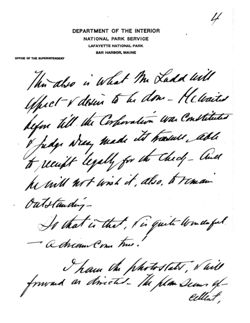 4
DEPARTMENT OF THE INTERIOR
NATIONAL PARK SERVICE
LAFAYETTE NATIONAL PARK
BAR HARBOR, MAINE
OFFICE OF THE SUPERINTENDENT
This also is what Mr. Ladd will
expect & desire to be done — He waited
before till the Corporation was constituted
& Judge Deasy made its treasurer, able
to receipt legally for the check — And
he will not wish it, also, to remain
outstanding.
So that is that, & is quite wonderful
— a dream come true.
I have the photostats, & will
forward as directed. The plan seems ex-
cellent,